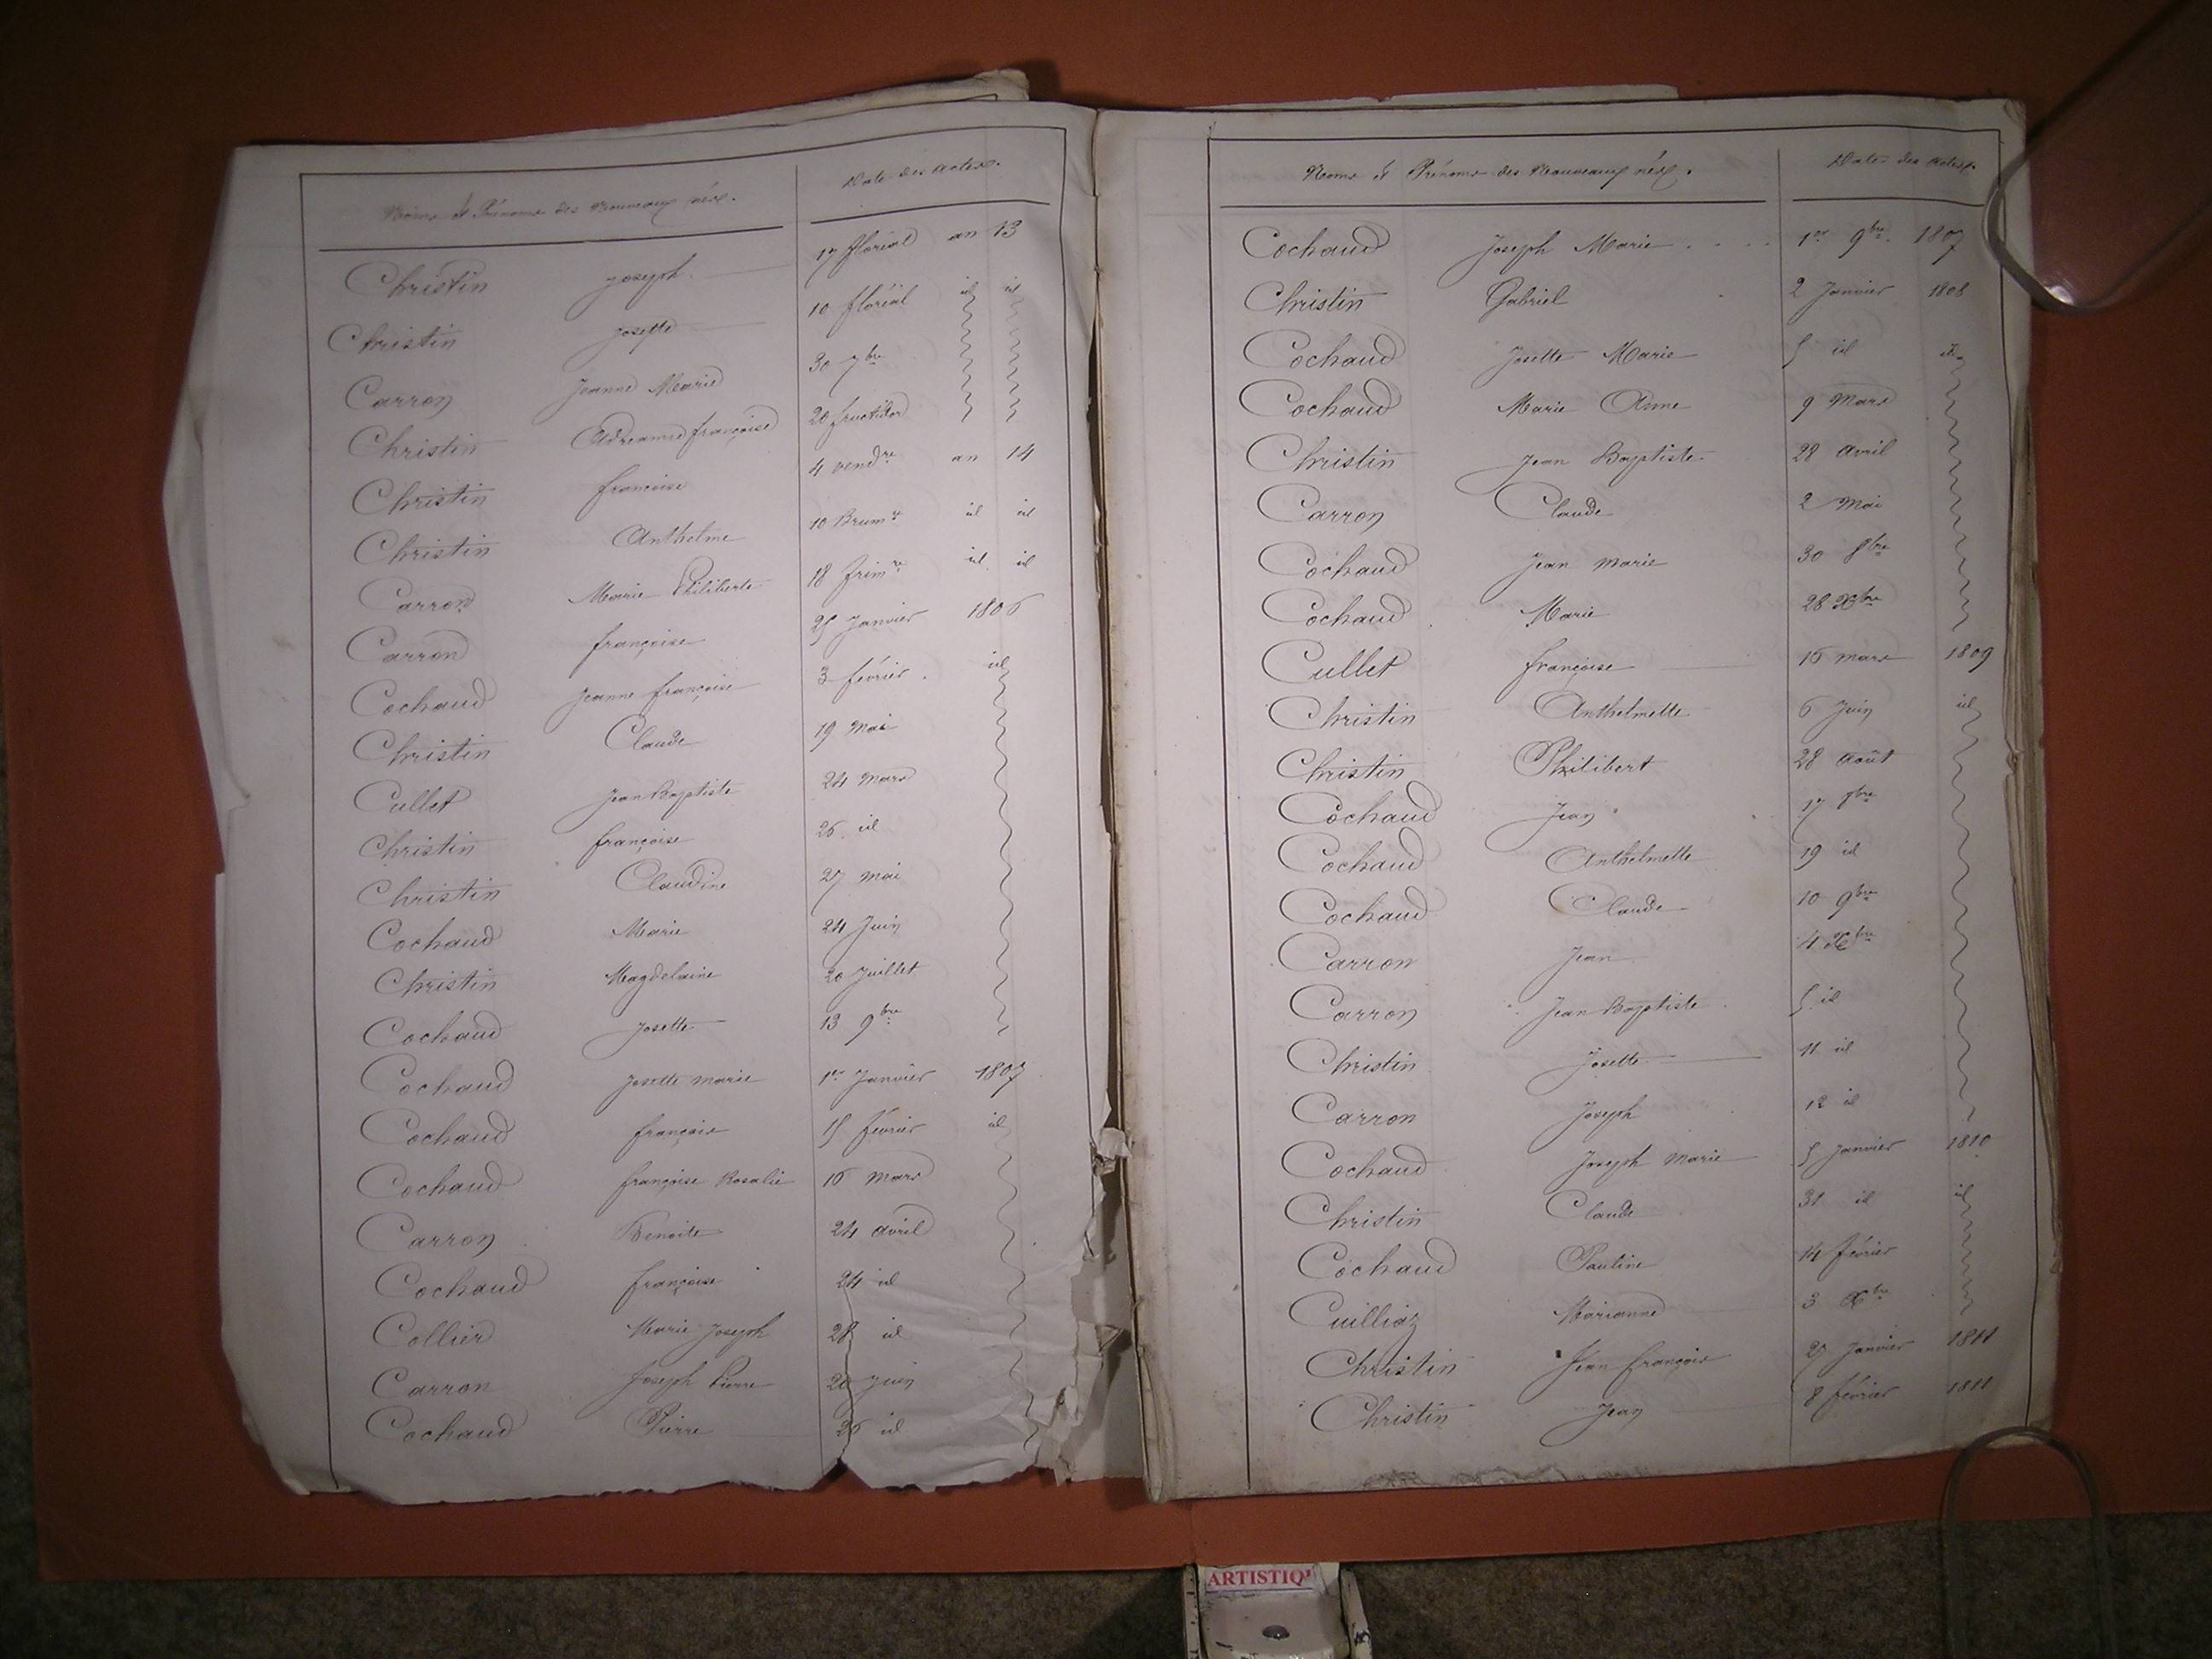 Noms et Prénoms des Nouveaux nés. Date des actes.
Christin Joseph 17 floréal an 13
Christin Josette 10 floréal id id
Carron Jeanne Marie 30 7bre
Christin françoise 20 fructidor
Christin françoise 4 vendre an 14
Christin Anthelme 10 Brumre id id
Carron Marie Philiberte 18 frimre id id
Carron françoise 25 Janvier 1806
Cochaud Jeanne françoise 3 février id
Christin Claude 19 Mai
Cullet Jean Baptiste 24 Mars
Christin françoise 26 id
Christin Claudine 27 Mai
Cochaud Marie 24 Juin
Christin Magdelaine 20 Juillet
Cochaud Josette 13 9bre
Cochaud Josette Marie 1er Janvier 1807
Cochaud françois 15 février id
Cochaud françoise Rosalie 16 Mars
Carron Benoite 24 avril
Cochaud françoise 24 id
Collier Marie Joseph 28 id
Carron Joseph Pierre 20 Juin
Cochaud Pierre 26 id
Noms et Prénoms des Nouveaux nés. Date des actes.
Cochaud Joseph Marie 1er 9bre 1807
Christin Gabriel 2 Janvier 1808
Cochaud Josette Marie 5 id id
Cochaud Marie Anne 9 Mars
Christin Jean Baptiste 28 avril
Carron Claude 2 Mai
Cochaud Jean Marie 30 8bre
Cochaud Marie 28 Xbre
Cullet françoise 16 mars 1809
Christin Anthelmette 6 Juin id
Christin Philibert 28 août
Cochaud Jean 17 8bre
Cochaud Anthelmette 19 id
Cochaud Claude 10 9bre
Carron Jean 4 Xbre
Carron Jean Baptiste 5 id
Christin Josette 11 id
Carron Joseph 12 id
Cochaud Joseph Marie 5 Janvier 1810
Christin Claude 31 id id
Cochaud Pauline 14 février
Cuilliaz Marianne 3 Xbre
Christin Jean françois 27 Janvier 1811
Christin Jean 8 février 1811
ARTISTIQ'